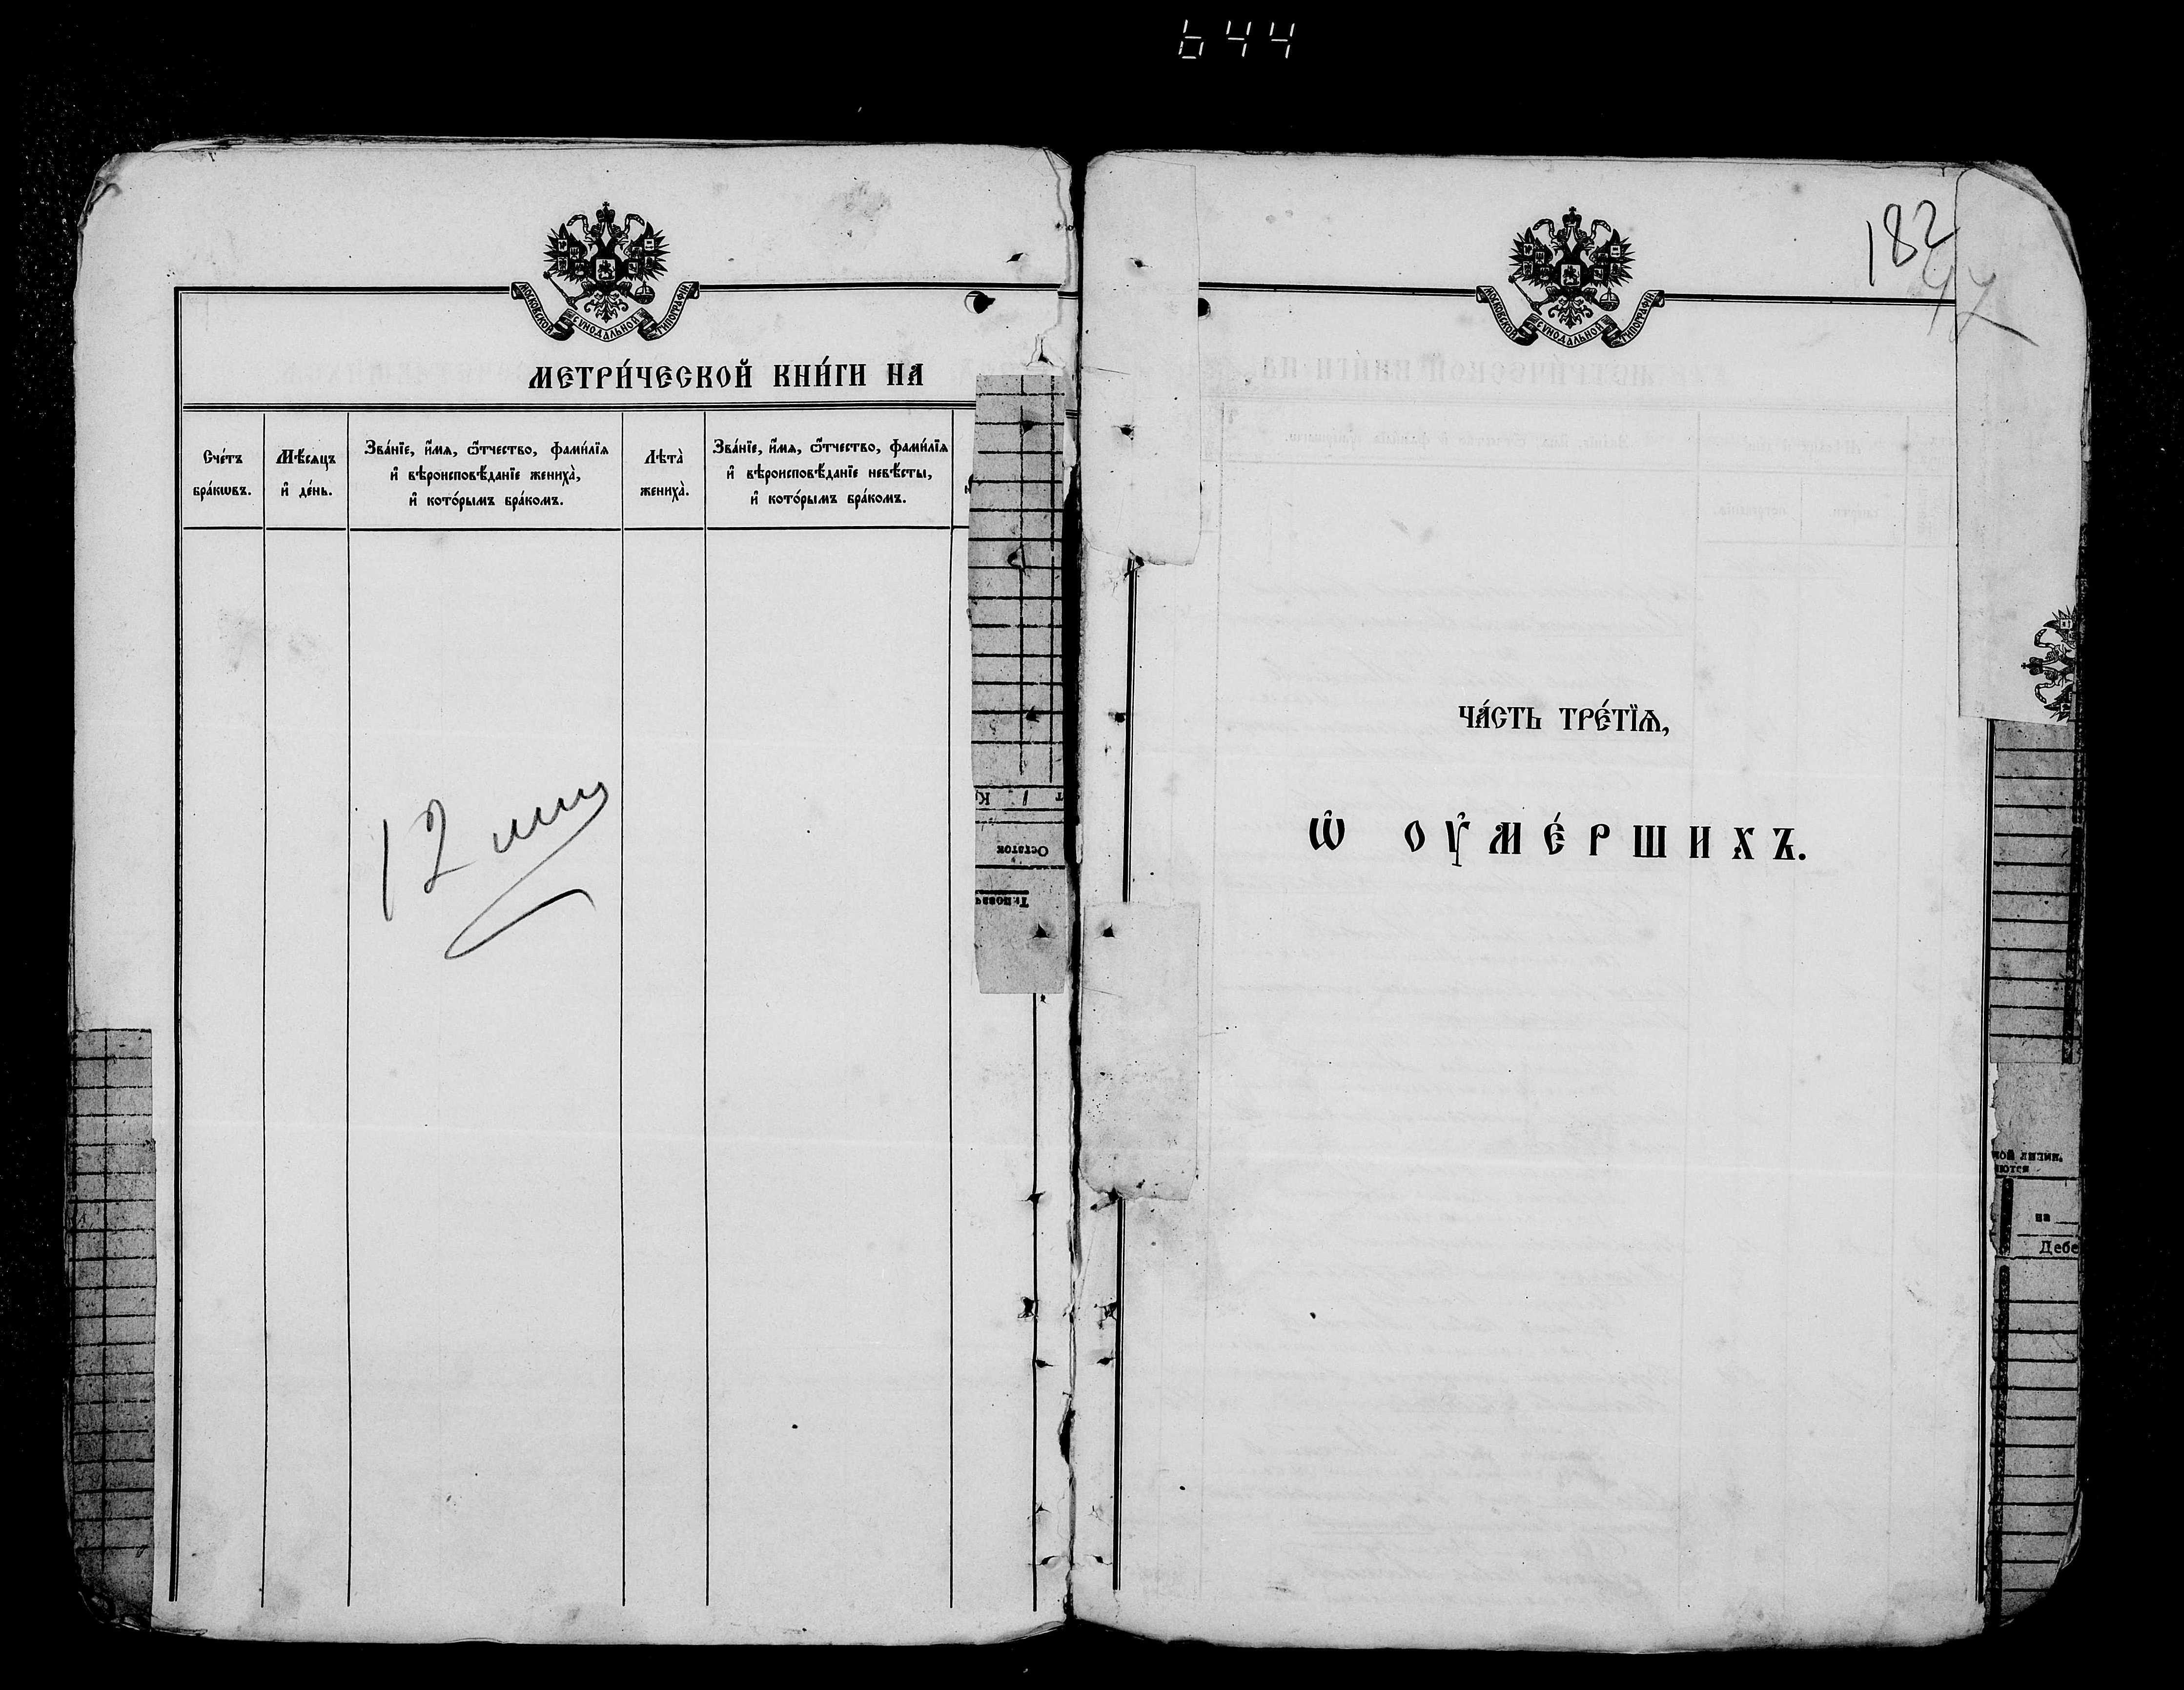 644
МОСКОВСКОЙ СѴНОДАЛЬНОЙ ТИПОГРАФІИ
МЕТРИ́ЧЕСКОЙ КНИ́ГИ НА
Сче́тъ
бра́кѡвъ.
Мѣ́сяцъ
и҆ де́нь.
Зва́нїе, и҆́мѧ, ѻ҆́тчество, фами́лїѧ
и҆ вѣроисповѣ́данїе жениха̀,
и҆ кото́рымъ бра́комъ.
Лѣта̀
жениха̀.
Зва́нїе, и҆́мѧ, ѻ҆́тчество, фами́лїѧ
и҆ вѣроисповѣ́данїе невѣ́сты,
и҆ кото́рымъ бра́комъ.
12
Остаток
182
МОСКОВСКОЙ СѴНОДАЛЬНОЙ ТИПОГРАФІИ
ЧА́СТЬ ТРЕ́ТЇѦ,
Ѡ҆ ОУ҆МЕ́РШИХЪ.
на
Дебе